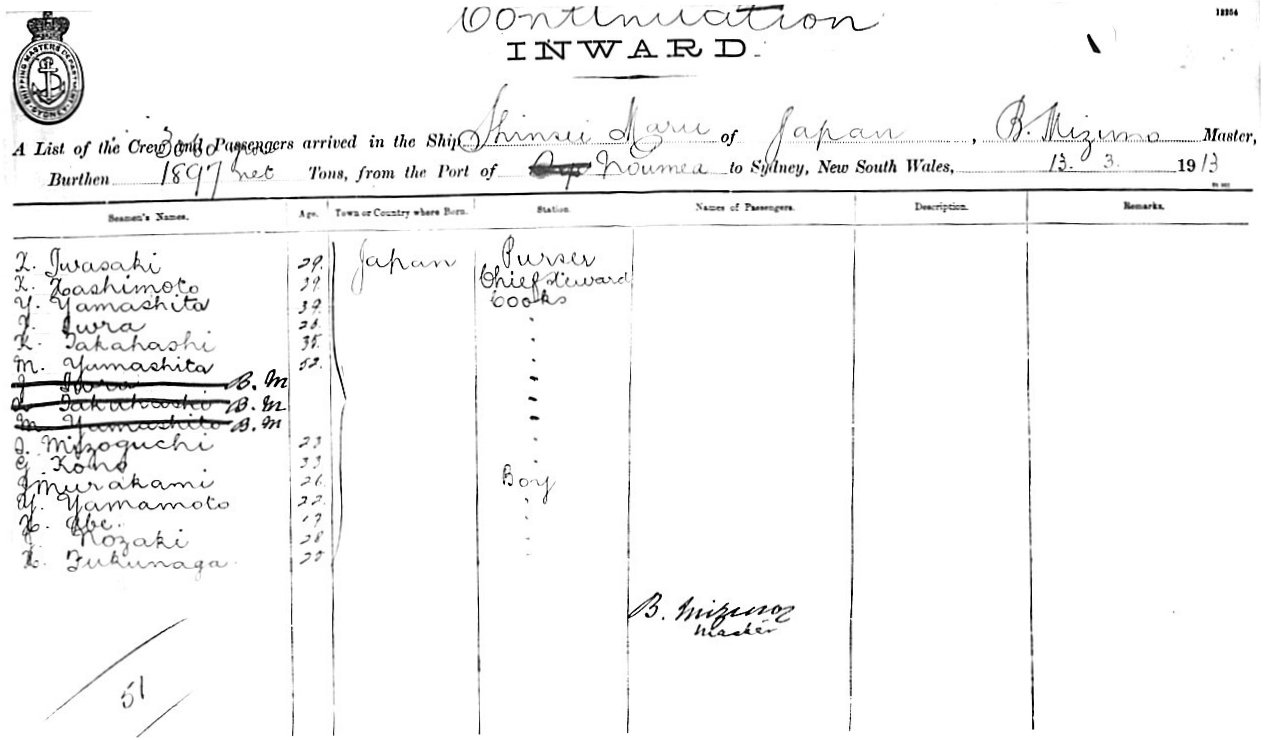 Continuation
18254
INWARD.
SHIPPING MASTERS DEPARTMENT SYDNEY
A List of the Crew and Passengers arrived in the Ship Shinsei Maru of Japan, B. Mizuno Master,
Burthen 1897 net Tons, from the Port of Noumea to Sydney, New South Wales, 13. 3. 1913
Seamen's Names. Age. Town or Country where Born. Station. Names of Passengers. Description. Remarks.
K. Iwasaki 29. Japan Purser
K. Hashimoto 29. Chief Steward
Y. Yamashita 39. Cooks
Iura
K. Takahashi 35. "
M. Yamashita 52. "
B. M
Takahashi B. M "
M. Yamashita B. M "
Mizoguchi 23 "
G. Kono 33 "
Murakami 26 Boy
Y. Yamamoto 22 "
Abe. 17 "
Nozaki 28 "
Fukunaga
B. Mizuno
Master
51